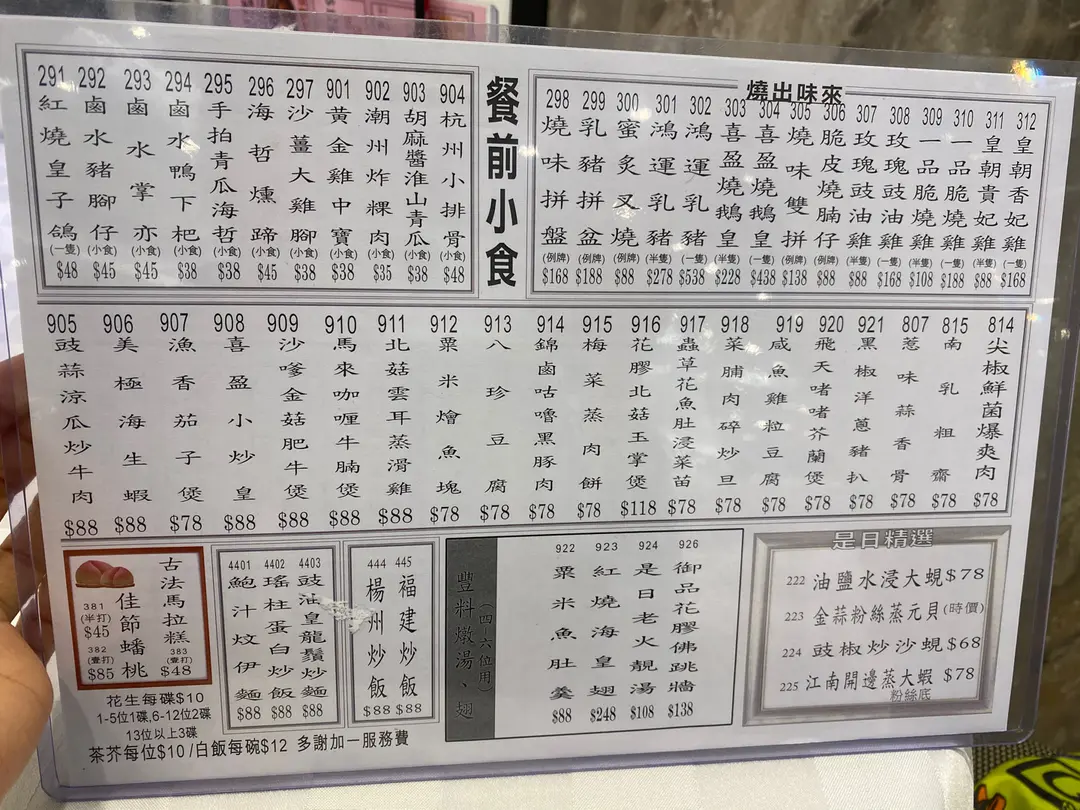 餐前小食
291 紅燒皇子鴿 (一隻) $48
292 鹵水豬腳仔 (小食) $45
293 鹵水掌亦 (小食) $45
294 鹵水鴨下杷 (小食) $38
295 手拍青瓜海哲 (小食) $38
296 海哲燻蹄 (小食) $45
297 沙薑大雞腳 (小食) $38
901 黃金雞中寶 (小食) $38
902 潮州炸粿肉 (小食) $35
903 胡麻醬淮山青瓜 (小食) $38
904 杭州小排骨 (小食) $48
燒出味來
298 燒味拼盤 (例牌) $168
299 乳豬拼盆 (例牌) $188
300 蜜炙叉燒 (例牌) $88
301 鴻運乳豬 (半隻) $278
302 鴻運乳豬 (一隻) $538
303 喜盈燒鵝皇 (半隻) $228
304 喜盈燒鵝皇 (一隻) $438
305 燒味雙拼 (例牌) $138
306 脆皮燒腩仔 (例牌) $88
307 玫瑰豉油雞 (半隻) $88
308 玫瑰豉油雞 (一隻) $168
309 一品脆燒雞 (半隻) $108
310 一品脆燒雞 (一隻) $188
311 皇朝貴妃雞 (半隻) $88
312 皇朝香妃雞 (一隻) $168
905 豉蒜涼瓜炒牛肉 $88
906 美極海生蝦 $88
907 漁香茄子煲 $78
908 喜盈小炒皇 $88
909 沙嗲金菇肥牛煲 $88
910 馬來咖喱牛腩煲 $88
911 北菇雲耳蒸滑雞 $88
912 粟米燴魚塊 $78
913 八珍豆腐 $78
914 錦鹵咕嚕黑豚肉 $78
915 梅菜蒸肉餅 $78
916 花膠北菇玉掌煲 $118
917 蟲草花魚肚浸菜苗 $78
918 菜脯肉碎炒旦 $78
919 咸魚雞粒豆腐煲 $78
920 飛天啫啫芥蘭煲 $78
921 黑椒洋蔥豬扒 $78
807 惹味蒜香骨 $78
815 南乳粗齋 $78
814 尖椒鮮菌爆爽肉 $78
佳節蟠桃
381 (半打) $45
382 (壹打) $85
古法馬拉糕
383 (壹打) $48
花生每碟$10
1-5位1碟,6-12位2碟
13位以上3碟
茶芥每位$10 /白飯每碗$12 多謝加一服務費
4401 鮑汁炆伊麵 $88
4402 瑤柱蛋白炒飯 $88
4403 豉油皇龍鬚炒麵 $88
444 楊州炒飯 $88
445 福建炒飯 $88
豐料燉湯、翅
(四-六位用)
922 粟米魚肚羹 $88
923 紅燒海皇翅 $248
924 是日老火靚湯 $108
926 御品花膠佛跳牆 $138
是日精選
222 油鹽水浸大蜆 $78
223 金蒜粉絲蒸元貝 (時價)
224 豉椒炒沙蜆 $68
225 江南開邊蒸大蝦 $78
粉絲底